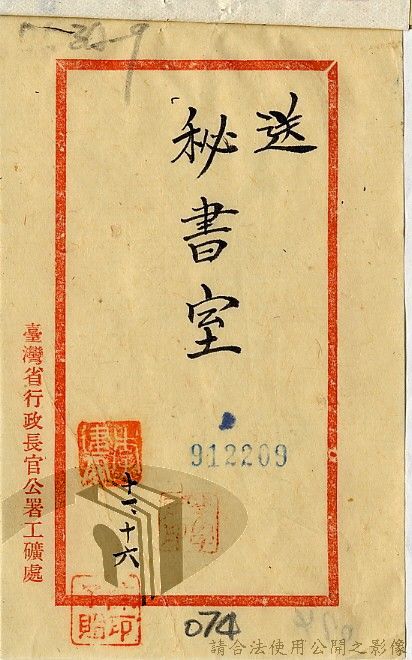 送
秘書室
912209
十一、十六
臺灣省行政長官公署工礦處
074
請合法使用公開之影像